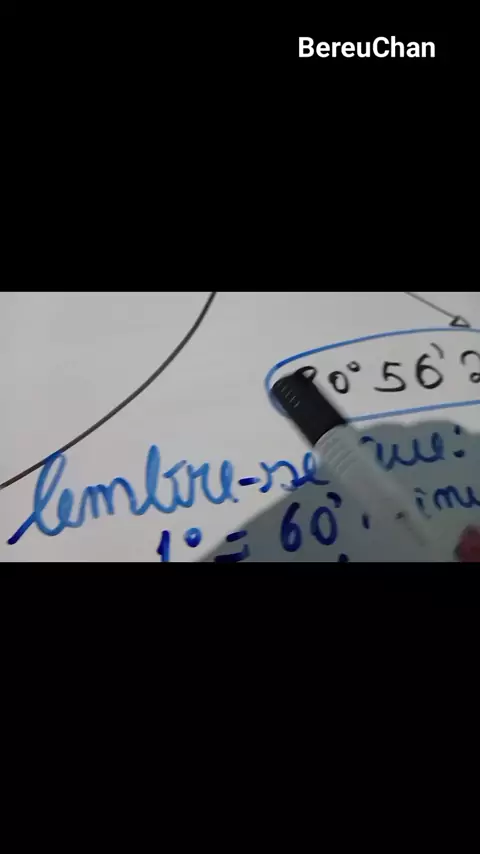 BereuChan
0° 56'
Lembre-se que:
1° = 60'